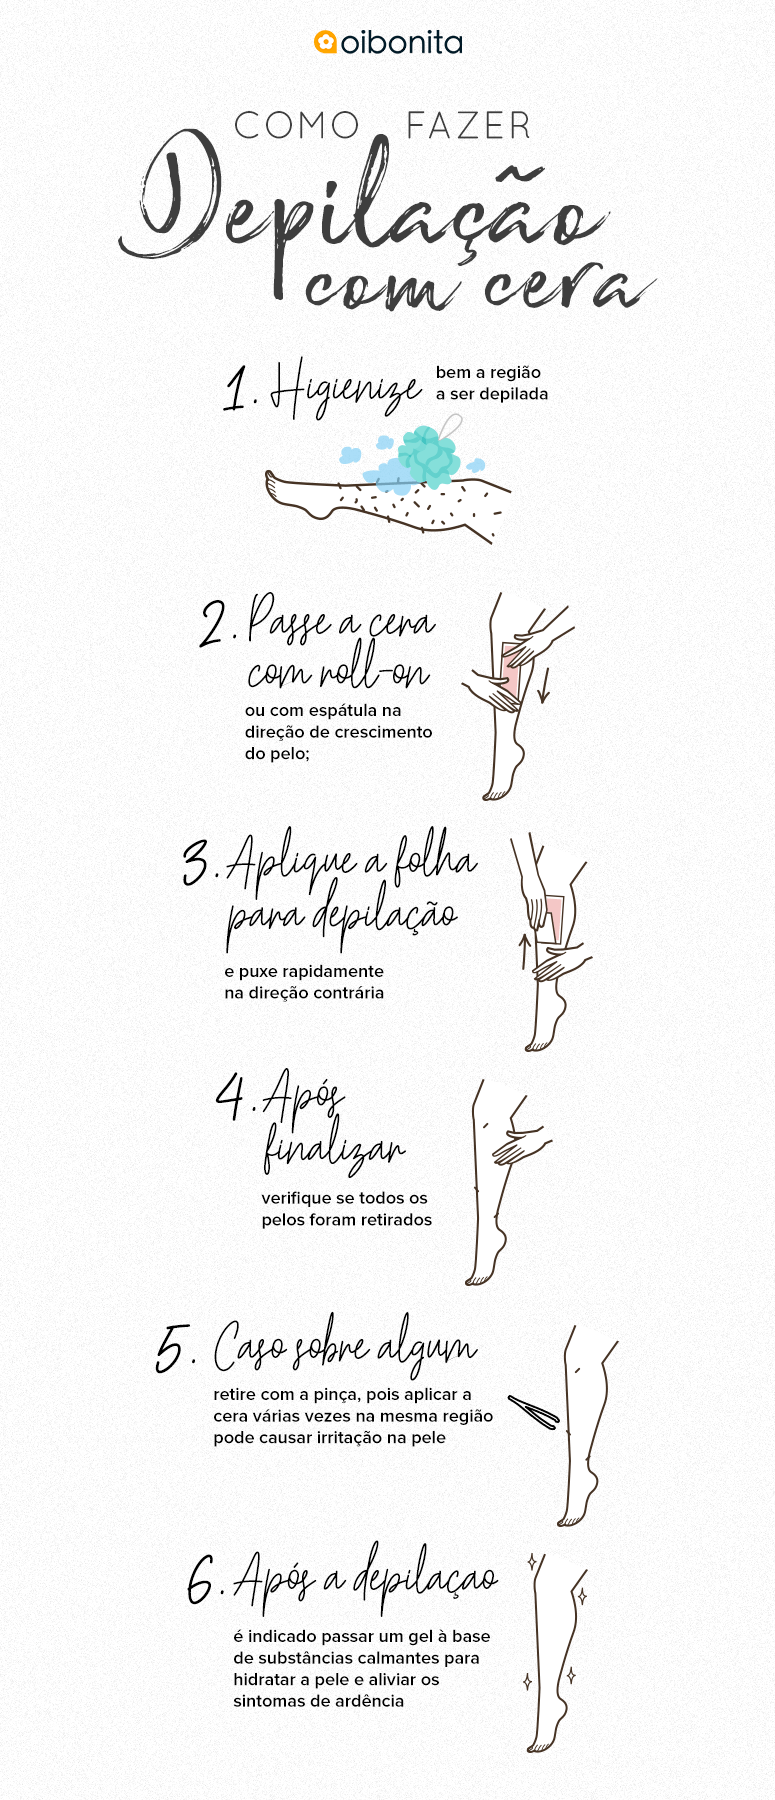 oibonita
COMO FAZER
Depilação
com cera
1. Higienize
bem a região
a ser depilada
2. Passe a cera
com roll-on
ou com espátula na
direção de crescimento
do pelo;
3. Aplique a folha
para depilação
e puxe rapidamente
na direção contrária
4. Após
finalizar
verifique se todos os
pelos foram retirados
5. Caso sobre algum
retire com a pinça, pois aplicar a
cera várias vezes na mesma região
pode causar irritação na pele
6. Após a depilaçao
é indicado passar um gel à base
de substâncias calmantes para
hidratar a pele e aliviar os
sintomas de ardência